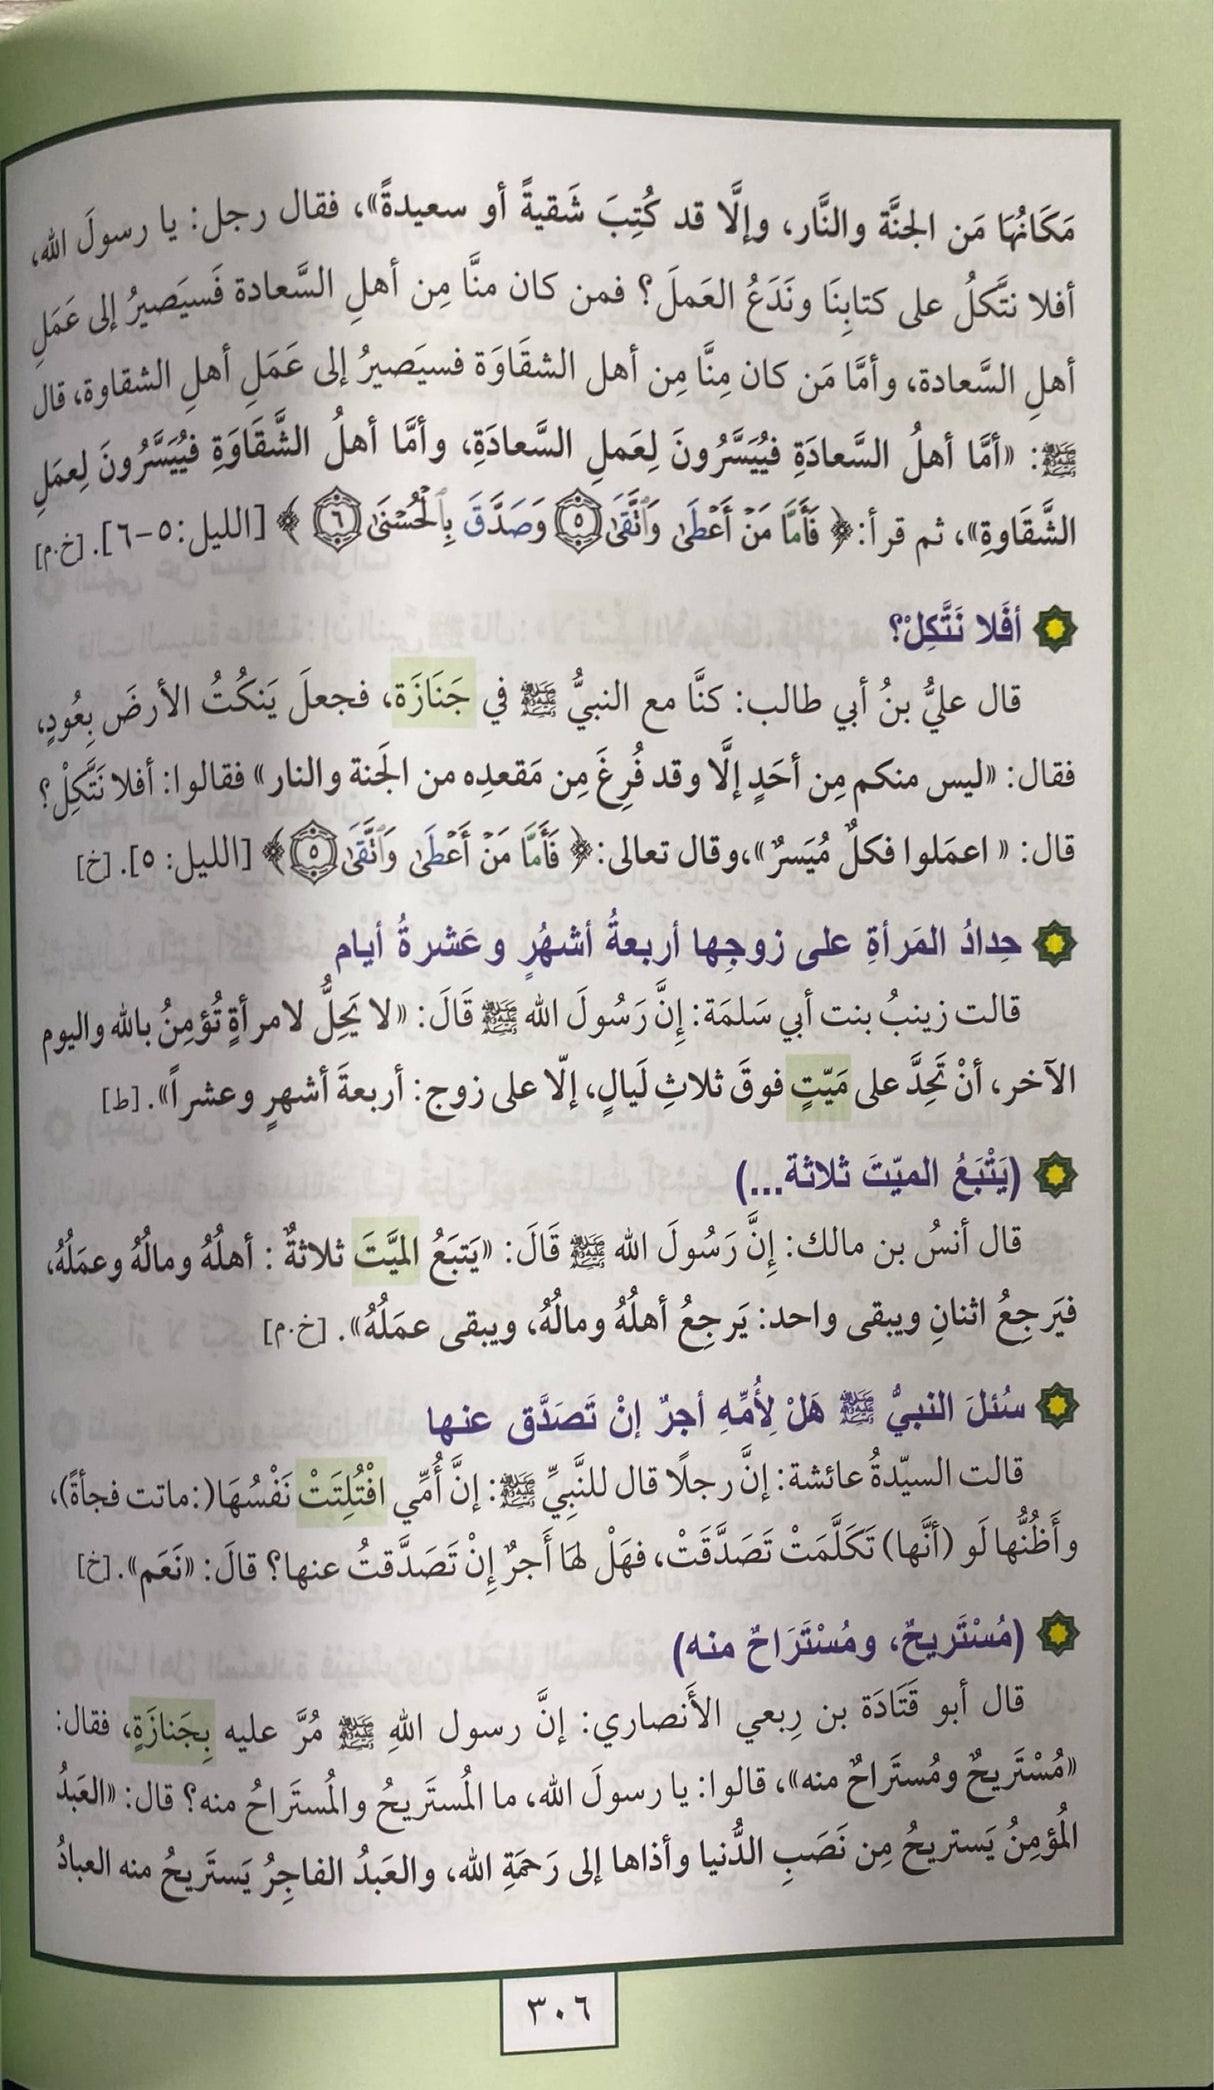 مَكَانُهَا مَن الجنَّة والنَّار، وإلَّا قد كُتِبَ شَقيةً أو سعيدةً»، فقال رجل: يا رسولَ الله،
أفلا نتَّكلُ على كتابِنَا ونَدَعُ العَملَ؟ فمن كان منَّا مِن أهلِ السَّعادة فَسيَصيرُ إلى عَمَلِ
أهلِ السَّعادة، وأمَّا مَن كان مِنَّا مِن أهل الشقَاوَة فسيَصيرُ إلى عَمَلِ أهلِ الشقاوة، قال
ﷺ: «أمَّا أهلُ السَّعادَةِ فيُيَسَّرُونَ لِعَملِ السَّعادَةِ، وأمَّا أهلُ الشَّقَاوَةِ فيُيَسَّرُونَ لِعمَلِ
الشَّقَاوةِ»، ثم قرأ: ﴿فَأَمَّا مَنْ أَعْطَىٰ وَٱتَّقَىٰ ٥ وَصَدَّقَ بِٱلْحُسْنَىٰ ٦﴾ [الليل: ٥-٦]. [خ.م]
أفَلا نَتَّكِلْ؟
قال عليُّ بنُ أبي طالب: كنَّا مع النبيُّ ﷺ في جَنَازَة، فجعلَ يَنكُتُ الأرضَ بِعُودٍ،
فقال: «ليس منكم مِن أحَدٍ إلَّا وقد فُرِغَ مِن مَقعدِه من الجَنة والنار» فقالوا: أفلا نَتَّكِلْ؟
قال: « اعمَلوا فكلٌ مُيَسرٌ»،وقال تعالى: ﴿فَأَمَّا مَنْ أَعْطَىٰ وَٱتَّقَىٰ ٥﴾ [الليل: ٥]. [خ]
حِدادُ المَرأةِ على زوجِها أربعةُ أشهُرٍ وعَشرةُ أيام
قالت زينبُ بنت أبي سَلمَة: إنَّ رَسُولَ الله ﷺ قَالَ: «لا يَحِلُّ لامرأةٍ تُؤمِنُ بالله واليوم
الآخر، أنْ تَحِدَّ على مَيّتٍ فوقَ ثلاثِ لَيالٍ، إلّا على زوج: أربعةَ أشهرٍ وعشراً». [ط]
(يَتْبَعُ الميّتَ ثلاثة...)
قال أنسُ بن مالك: إنَّ رَسُولَ الله ﷺ قَالَ: «يَتبَعُ الميَّتَ ثلاثةٌ : أهلُهُ ومالُهُ وعمَلُهُ،
فيَرجِعُ اثنانِ ويبقى واحد: يَرجِعُ أهلُهُ ومالُهُ، ويبقى عمَلُهُ». [خ.م]
سُئلَ النبيُّ ﷺ هَلْ لِأُمِّهِ أجرٌ إنْ تَصَدَّق عنها
قالت السيّدةُ عائشة: إنَّ رجلًا قال للنَّبِيِّ ﷺ: إنَّ أُمِّي افْتُلِتَتْ نَفْسُهَا(:ماتت فجأةً)،
وأَظُنُّها لَو (أنَّها) تَكَلَّمَتْ تَصَدَّقَتْ، فهَلْ لهَا أَجرٌ إنْ تَصَدَّقتُ عنها؟ قالَ: «نَعَم». [خ]
(مُسْتَريحٌ، ومُسْتَرَاحٌ منه)
قال أبو قَتَادَة بن رِبعي الأَنصاري: إنَّ رسول اللهِ ﷺ مُرَّ عليه بِجَنازَةٍ، فقال:
«مُسْتَريحٌ ومُستَراحٌ منه»، قالوا: يا رسولَ الله، ما المُستَريحُ والمُستَراحُ منه؟ قال: «العَبدُ
المُؤمِنُ يَستريحُ مِن نَصَبِ الدُّنيا وأذاها إلى رَحمَةِ الله، والعَبدُ الفاجِرُ يَستَريحُ منه العبادُ
٣٠٦